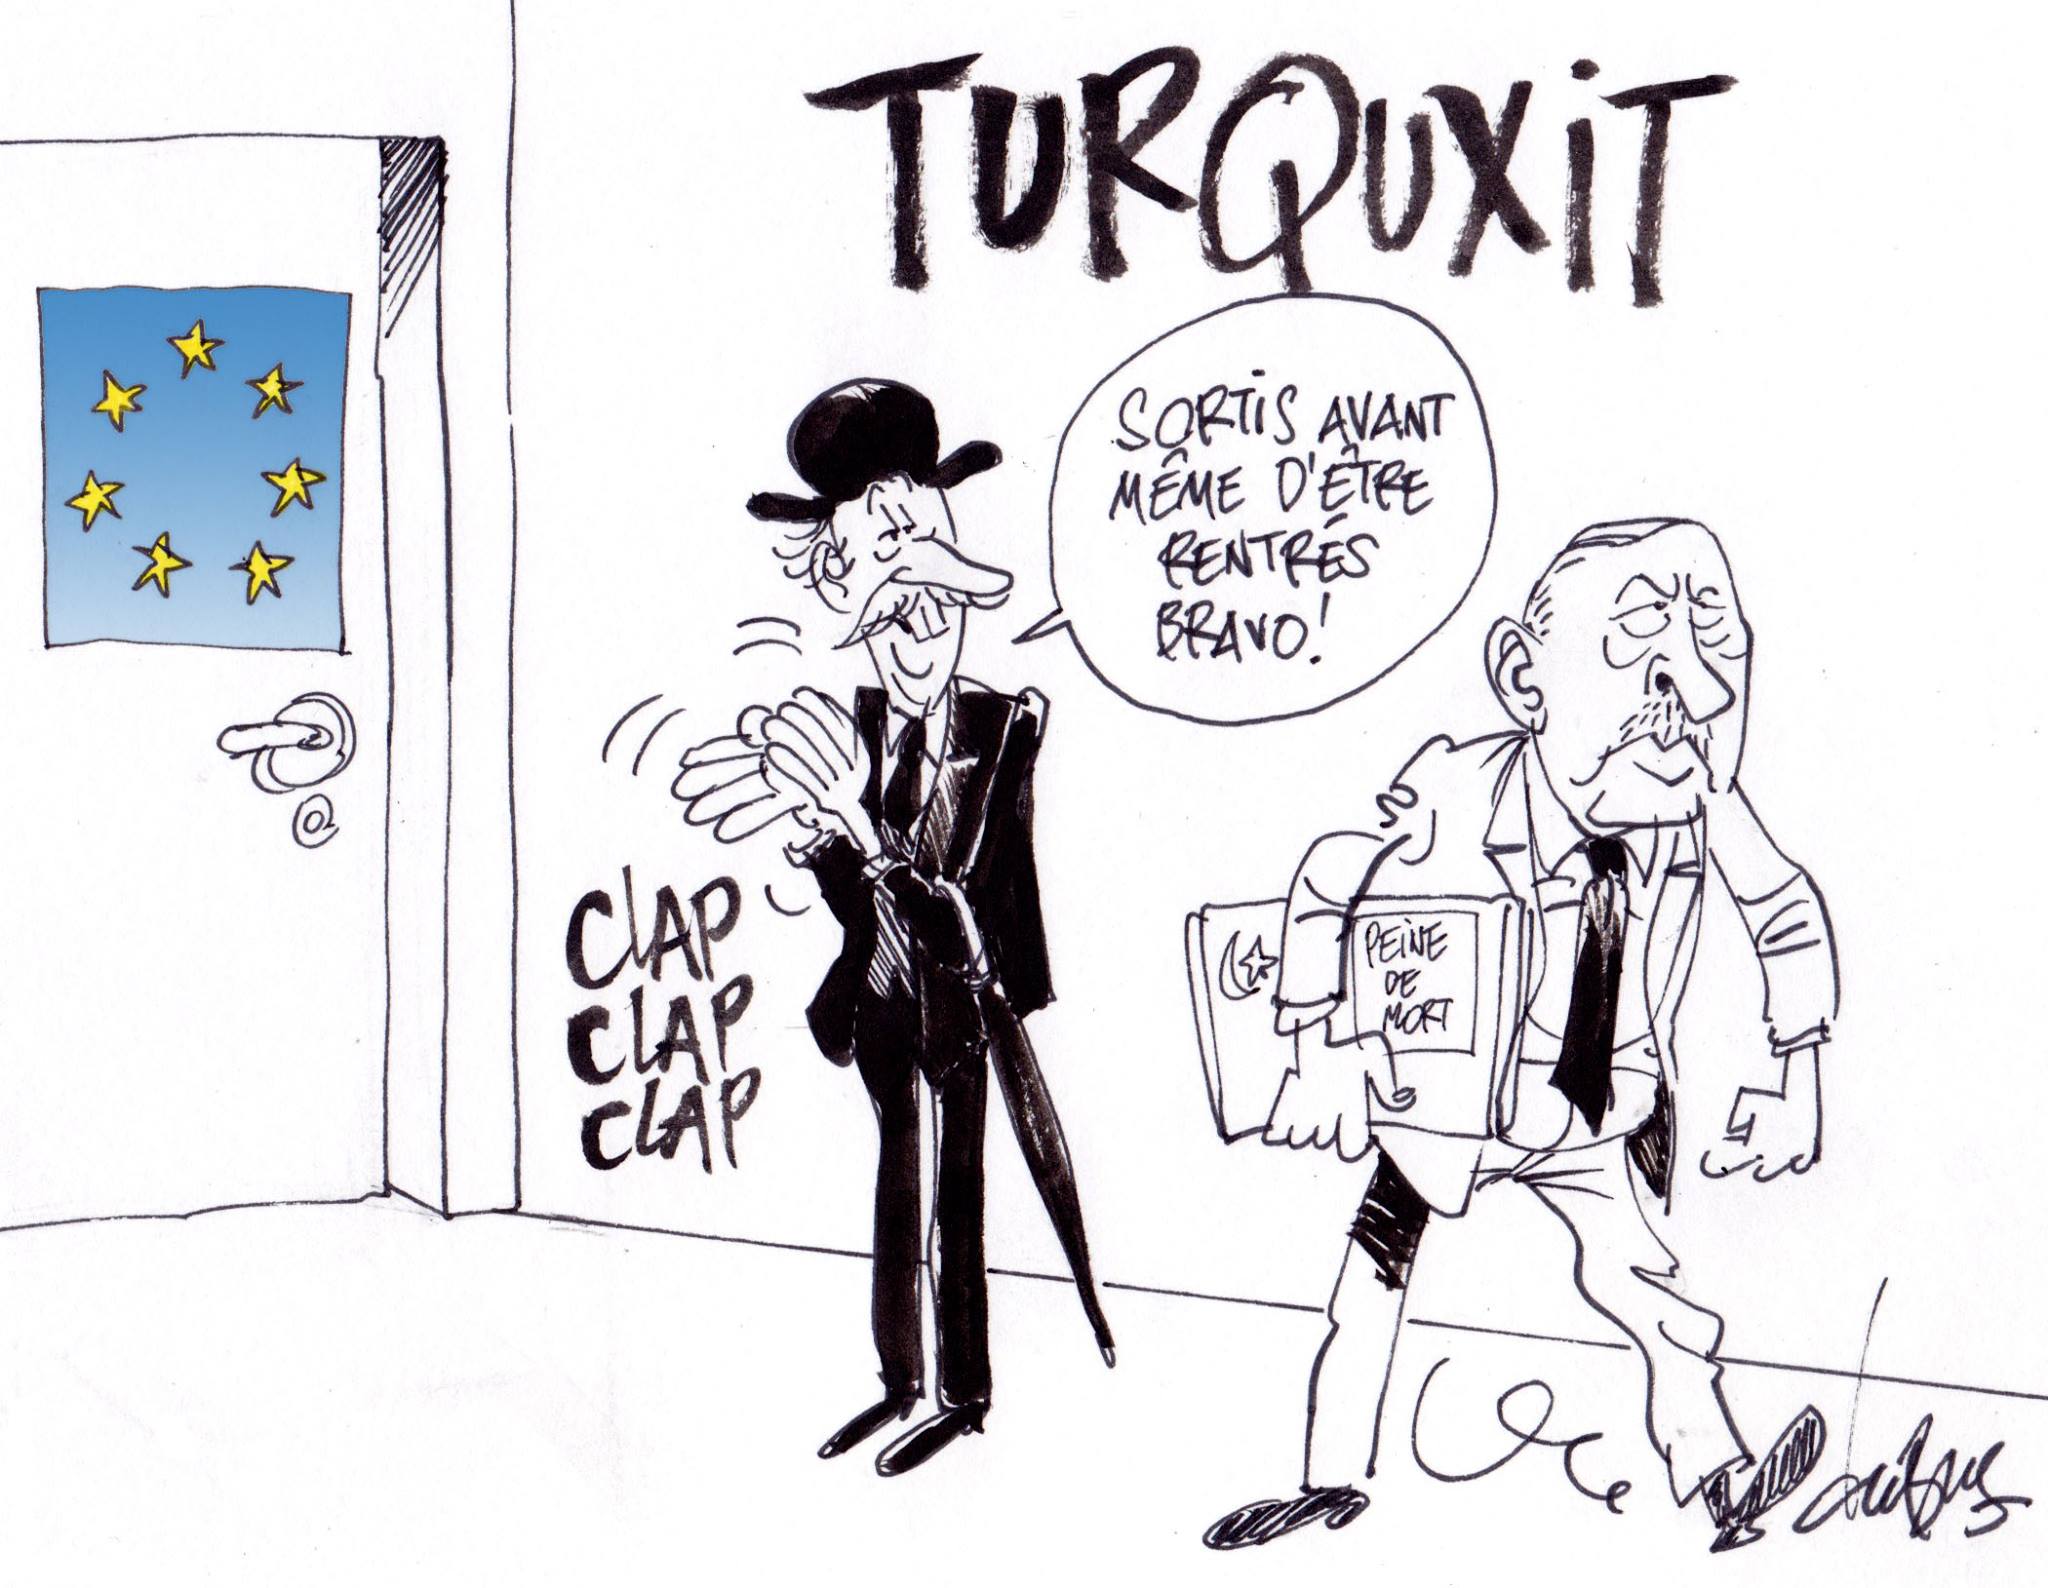 TURQUXiT
SORTiS AVANT
MÊME D'ÊTRE
RENTRÉS
BRAVO!
CLAP
CLAP
CLAP
PEiNE
DE
MORT